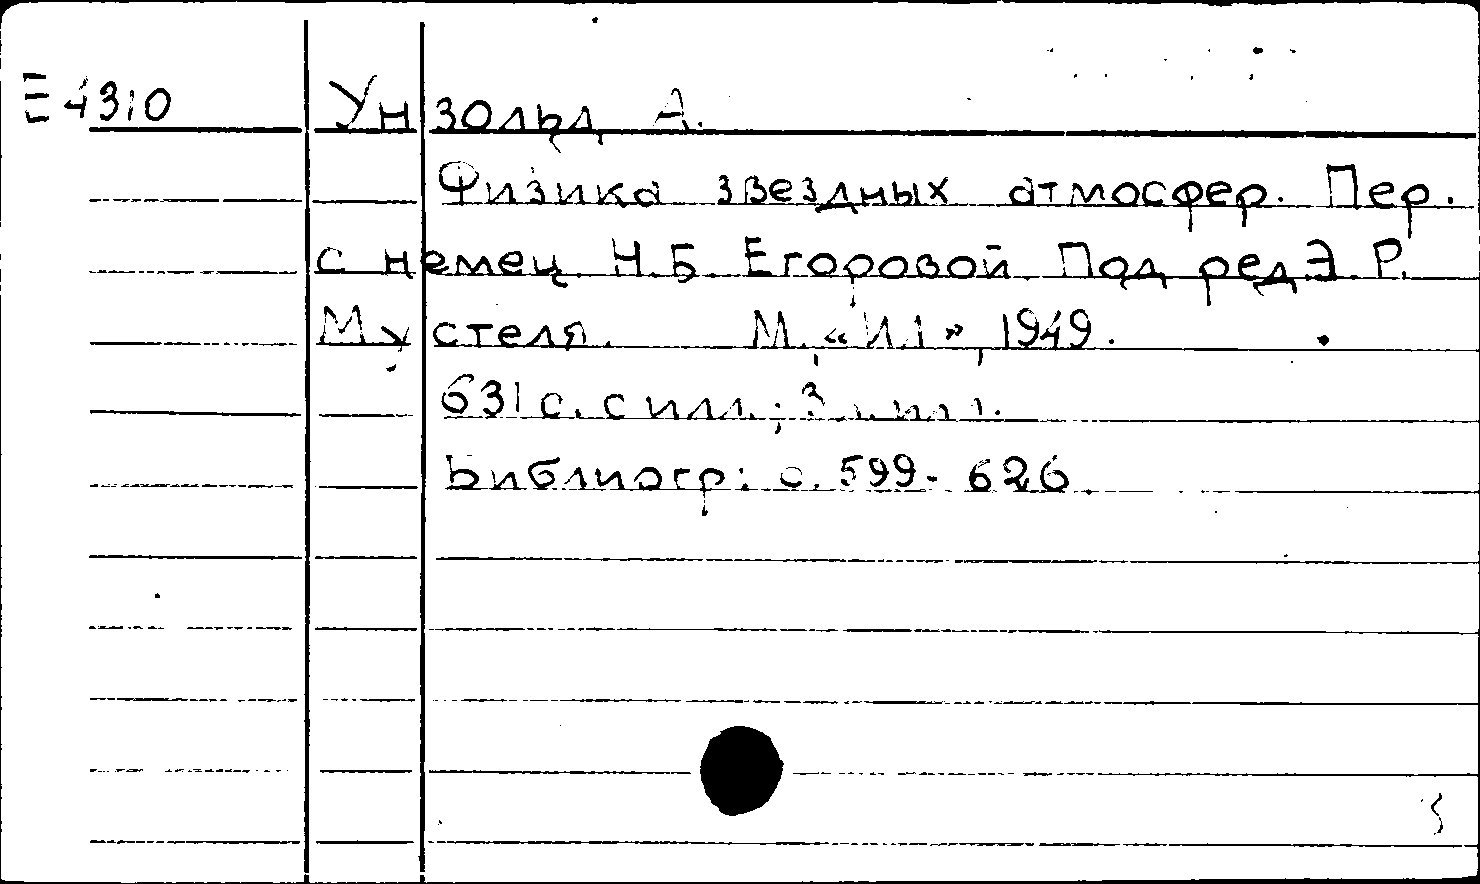 Е 4310 Унзольд А.
Физика звездных атмосфер. Пер.
с немец. Н.Б. Егоровой. Под ред. Э. Р.
Мустеля. М., «ИЛ», 1949.
631 с. с илл.; 3 л. илл.
Библиогр: с. 599-626.